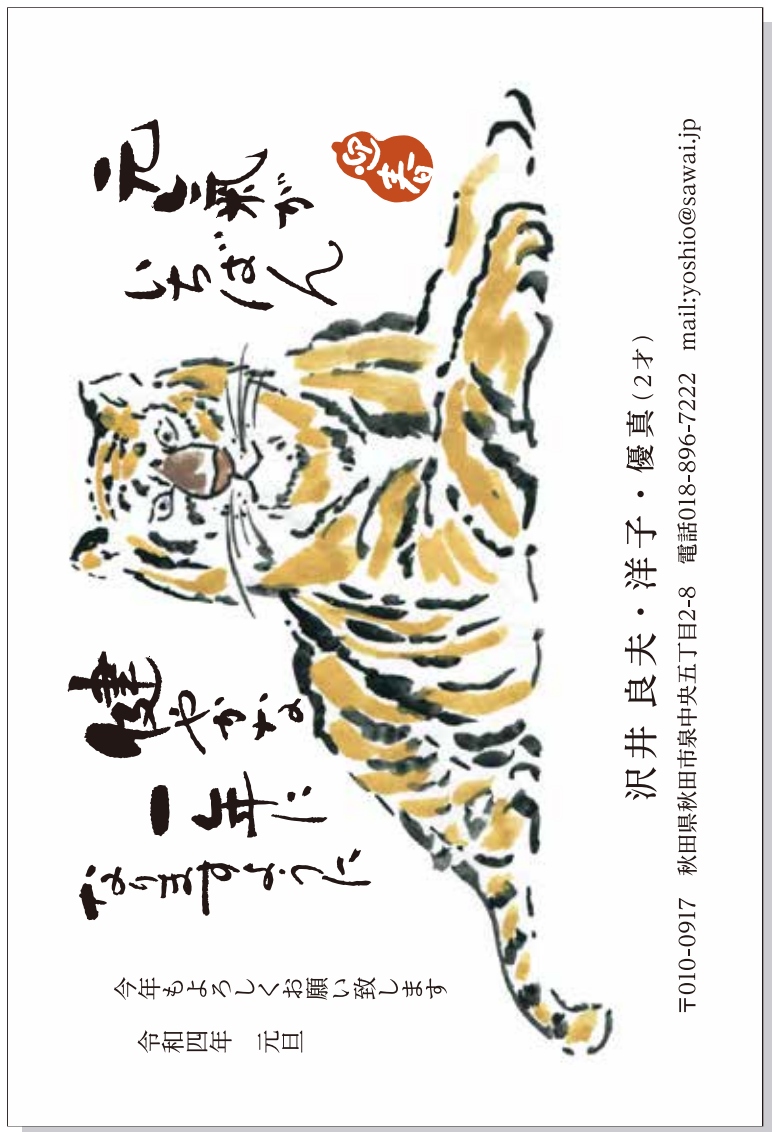 元氣が
いちばん
迎春
健やかな
一年に
なりますように
今年もよろしくお願い致します
令和四年 元旦
沢井 良夫・洋子・優真（2才）
〒010-0917 秋田県秋田市泉中央五丁目2-8 電話018-896-7222 mail:yoshio@sawai.jp